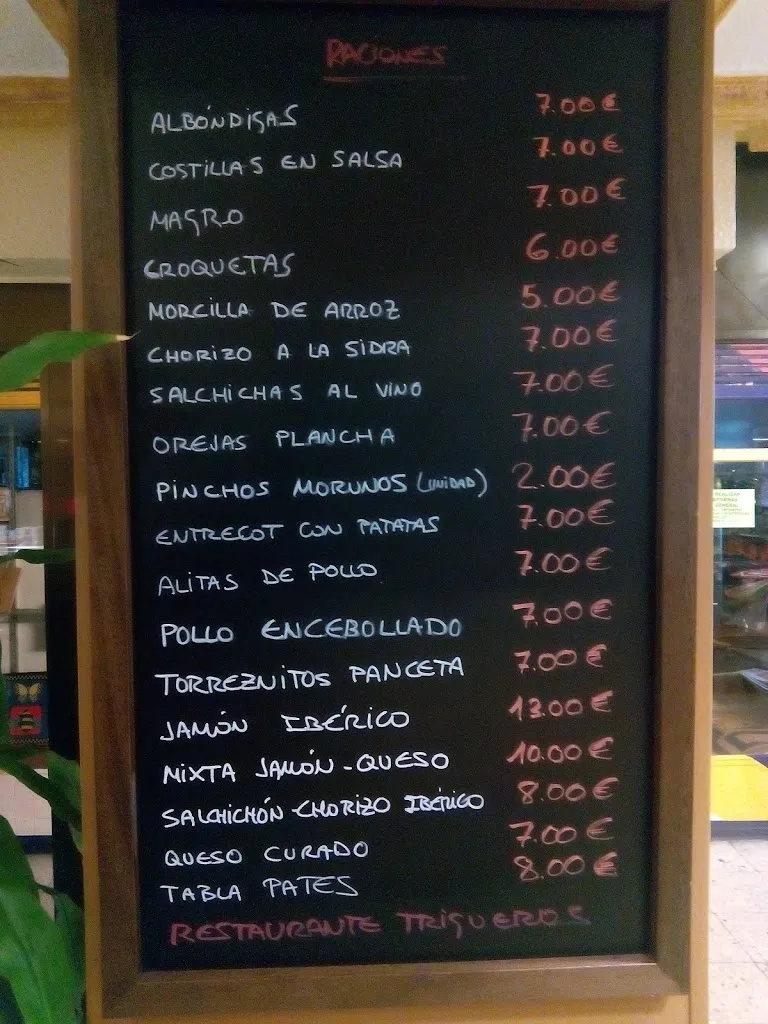 RACIONES
ALBÓNDIGAS 7.00€
COSTILLAS EN SALSA 7.00€
MAGRO 7.00€
CROQUETAS 6.00€
MORCILLA DE ARROZ 5.00€
CHORIZO A LA SIDRA 7.00€
SALCHICHAS AL VINO 7.00€
OREJAS PLANCHA 7.00€
PINCHOS MORUNOS (UNIDAD) 2.00€
ENTRECOT CON PATATAS 7.00€
ALITAS DE POLLO 7.00€
POLLO ENCEBOLLADO 7.00€
TORREZNITOS PANCETA 7.00€
JAMÓN IBÉRICO 13.00€
MIXTA JAMÓN-QUESO 10.00€
SALCHICHÓN-CHORIZO IBÉRICO 8.00€
QUESO CURADO 7.00€
TABLA PATES 8.00€
RESTAURANTE TRIGUEROS